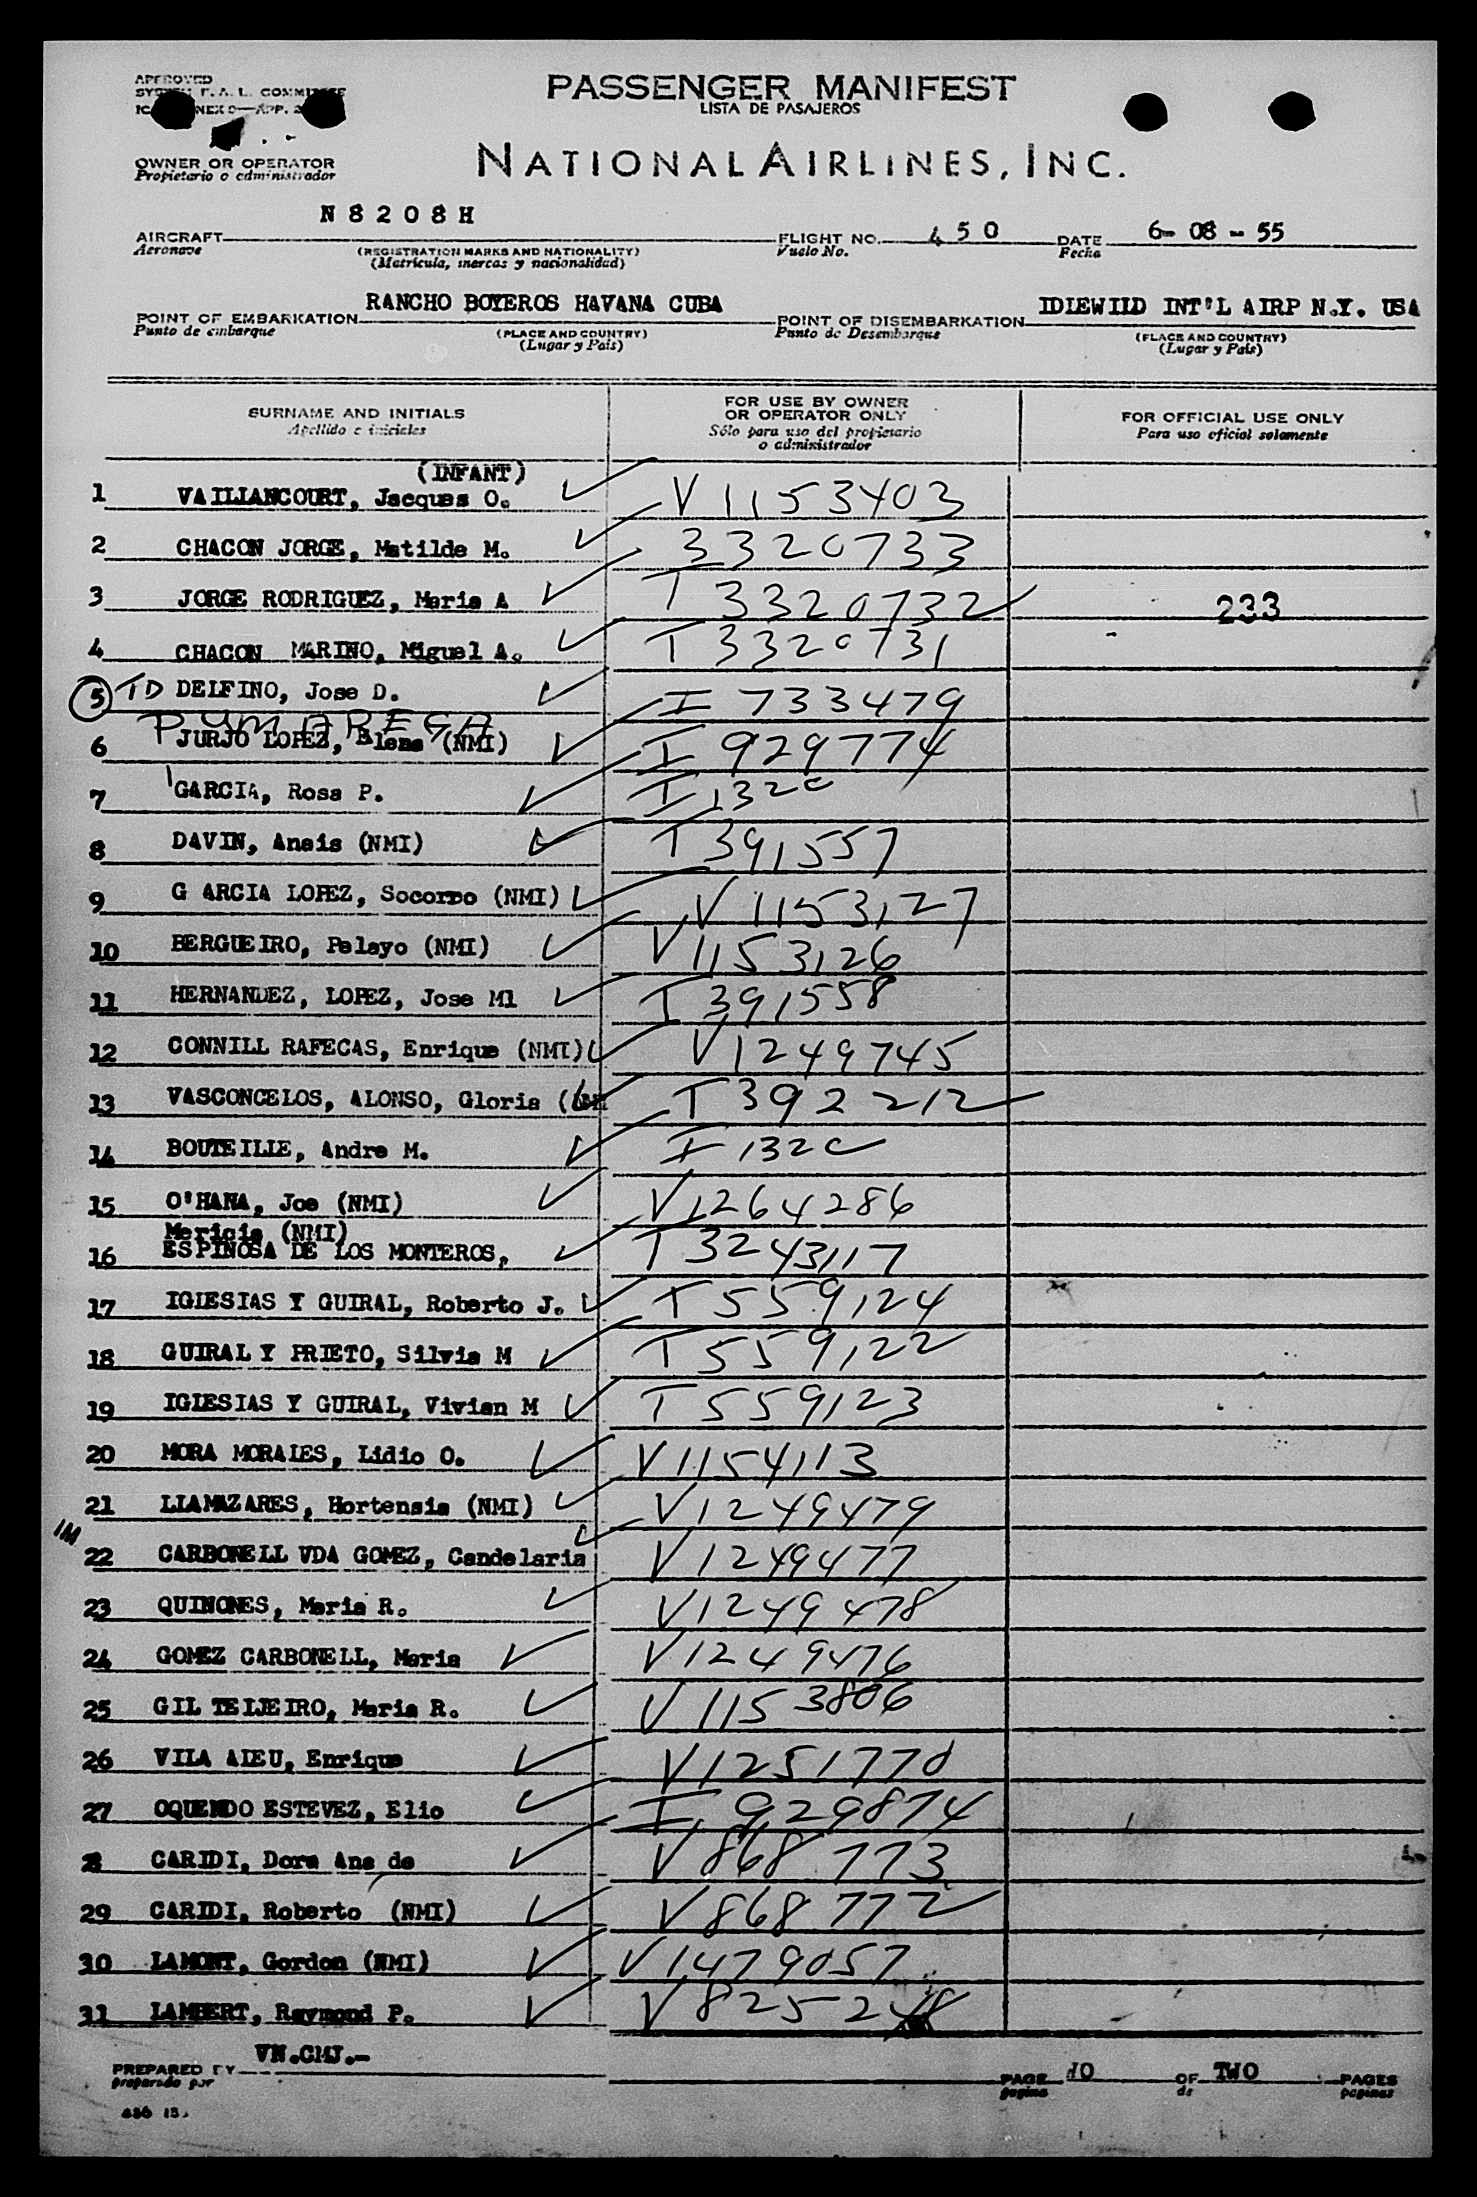 APPROVED
PASSENGER MANIFEST
LISTA DE PASAJEROS
OWNER OR OPERATOR
Propietario o administrador
NATIONAL AIRLINES, INC.
N 8 2 0 8 H
AIRCRAFT
Aeronave
(REGISTRATION MARKS AND NATIONALITY)
(Matrícula, marcas y nacionalidad)
FLIGHT NO. 4 5 0
Vuelo No.
DATE 6- 08 - 55
Fecha
POINT OF EMBARKATION RANCHO BOYEROS HAVANA CUBA
Punto de embarque
(PLACE AND COUNTRY)
(Lugar y País)
POINT OF DISEMBARKATION IDLEWILD INT'L AIRP N.Y. USA
Punto de Desembarque
(PLACE AND COUNTRY)
(Lugar y País)
SURNAME AND INITIALS
Apellido e iniciales
FOR USE BY OWNER
OR OPERATOR ONLY
Sólo para uso del propietario
o administrador
FOR OFFICIAL USE ONLY
Para uso oficial solamente
(INFANT)
1 VAILLANCOURT, Jacques O. V 1153403
2 CHACON JORGE, Matilde M. 3320733
3 JORGE RODRIGUEZ, Maria A T 3320732 233
4 CHACON MARINO, Miguel A. T 3320731
5 TD DELFINO, Jose D. I 733479
PUMAREGA
6 JURJO LOPEZ, Elena (NMI) I 929774
7 GARCIA, Rosa P. I 132C
8 DAVIN, Anais (NMI) T 391557
9 G ARCIA LOPEZ, Socorro (NMI) V 1153127
10 BERGUEIRO, Pelayo (NMI) V 1153126
11 HERNANDEZ, LOPEZ, Jose Ml T 391558
12 CONNILL RAFECAS, Enrique (NMI) V 1249745
13 VASCONCELOS, ALONSO, Gloria T 392212
14 BOUTEILLE, Andre M. I 132C
15 O'HANA, Joe (NMI) V 1264286
Mericia (NMI)
16 ESPINOSA DE LOS MONTEROS, T 3243117
17 IGLESIAS Y GUIRAL, Roberto J. T 559124
18 GUIRAL Y PRIETO, Silvia M T 559122
19 IGLESIAS Y GUIRAL, Vivian M T 559123
20 MORA MORALES, Lidio O. V 1154113
21 LLAMAZARES, Hortensia (NMI) V 1249479
1M
22 CARBONELL VDA GOMEZ, Candelaria V 1249477
23 QUINONES, Maria R. V 1249478
24 GOMEZ CARBONELL, Maria V 1249476
25 GIL TEIJEIRO, Maria R. V 1153806
26 VILA ALEU, Enrique V 1251770
27 OQUENDO ESTEVEZ, Elio I 929874
28 CARIDI, Dora Ana de V 868773
29 CARIDI, Roberto (NMI) V 868772
30 LAMONT, Gordon (NMI) V 1479057
31 LAMBERT, Raymond P. V 825248
PREPARED BY VN.CMJ.-
preparado por
PAGE OF TWO PAGES
pagina de paginas